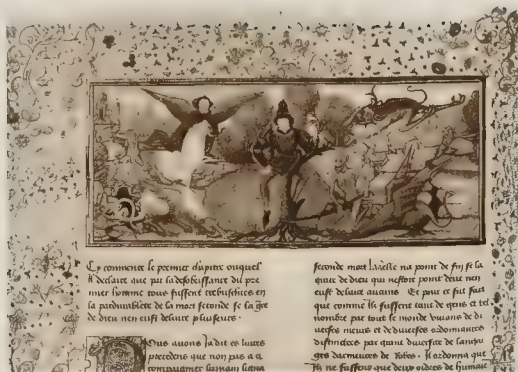 Cy commence le premier chapitre ouquel
il declaire que par la desobeissance du pre
mier homme tous fussent trebuschies en
la pardurablete de la mort seconde se la gre
de dieu nen eust delivre pluseurs
Nous avons ja dit es livres
precedens que non pas a
acompaignier lumain
seconde mort laquelle na point de fin se la
grace de dieu qui nestoit point deue nen
eust delivre aucuns Et pour ce fut fait
que comme ilz fussent tant de gens et tel
nombre par tout le monde vivans de di
verses meurs et de diverses ordonnances
distinctees par grant diversite de langa
ges darmeures de robes Il ordonna que
ilz ne fussent que deux ordres de humaine